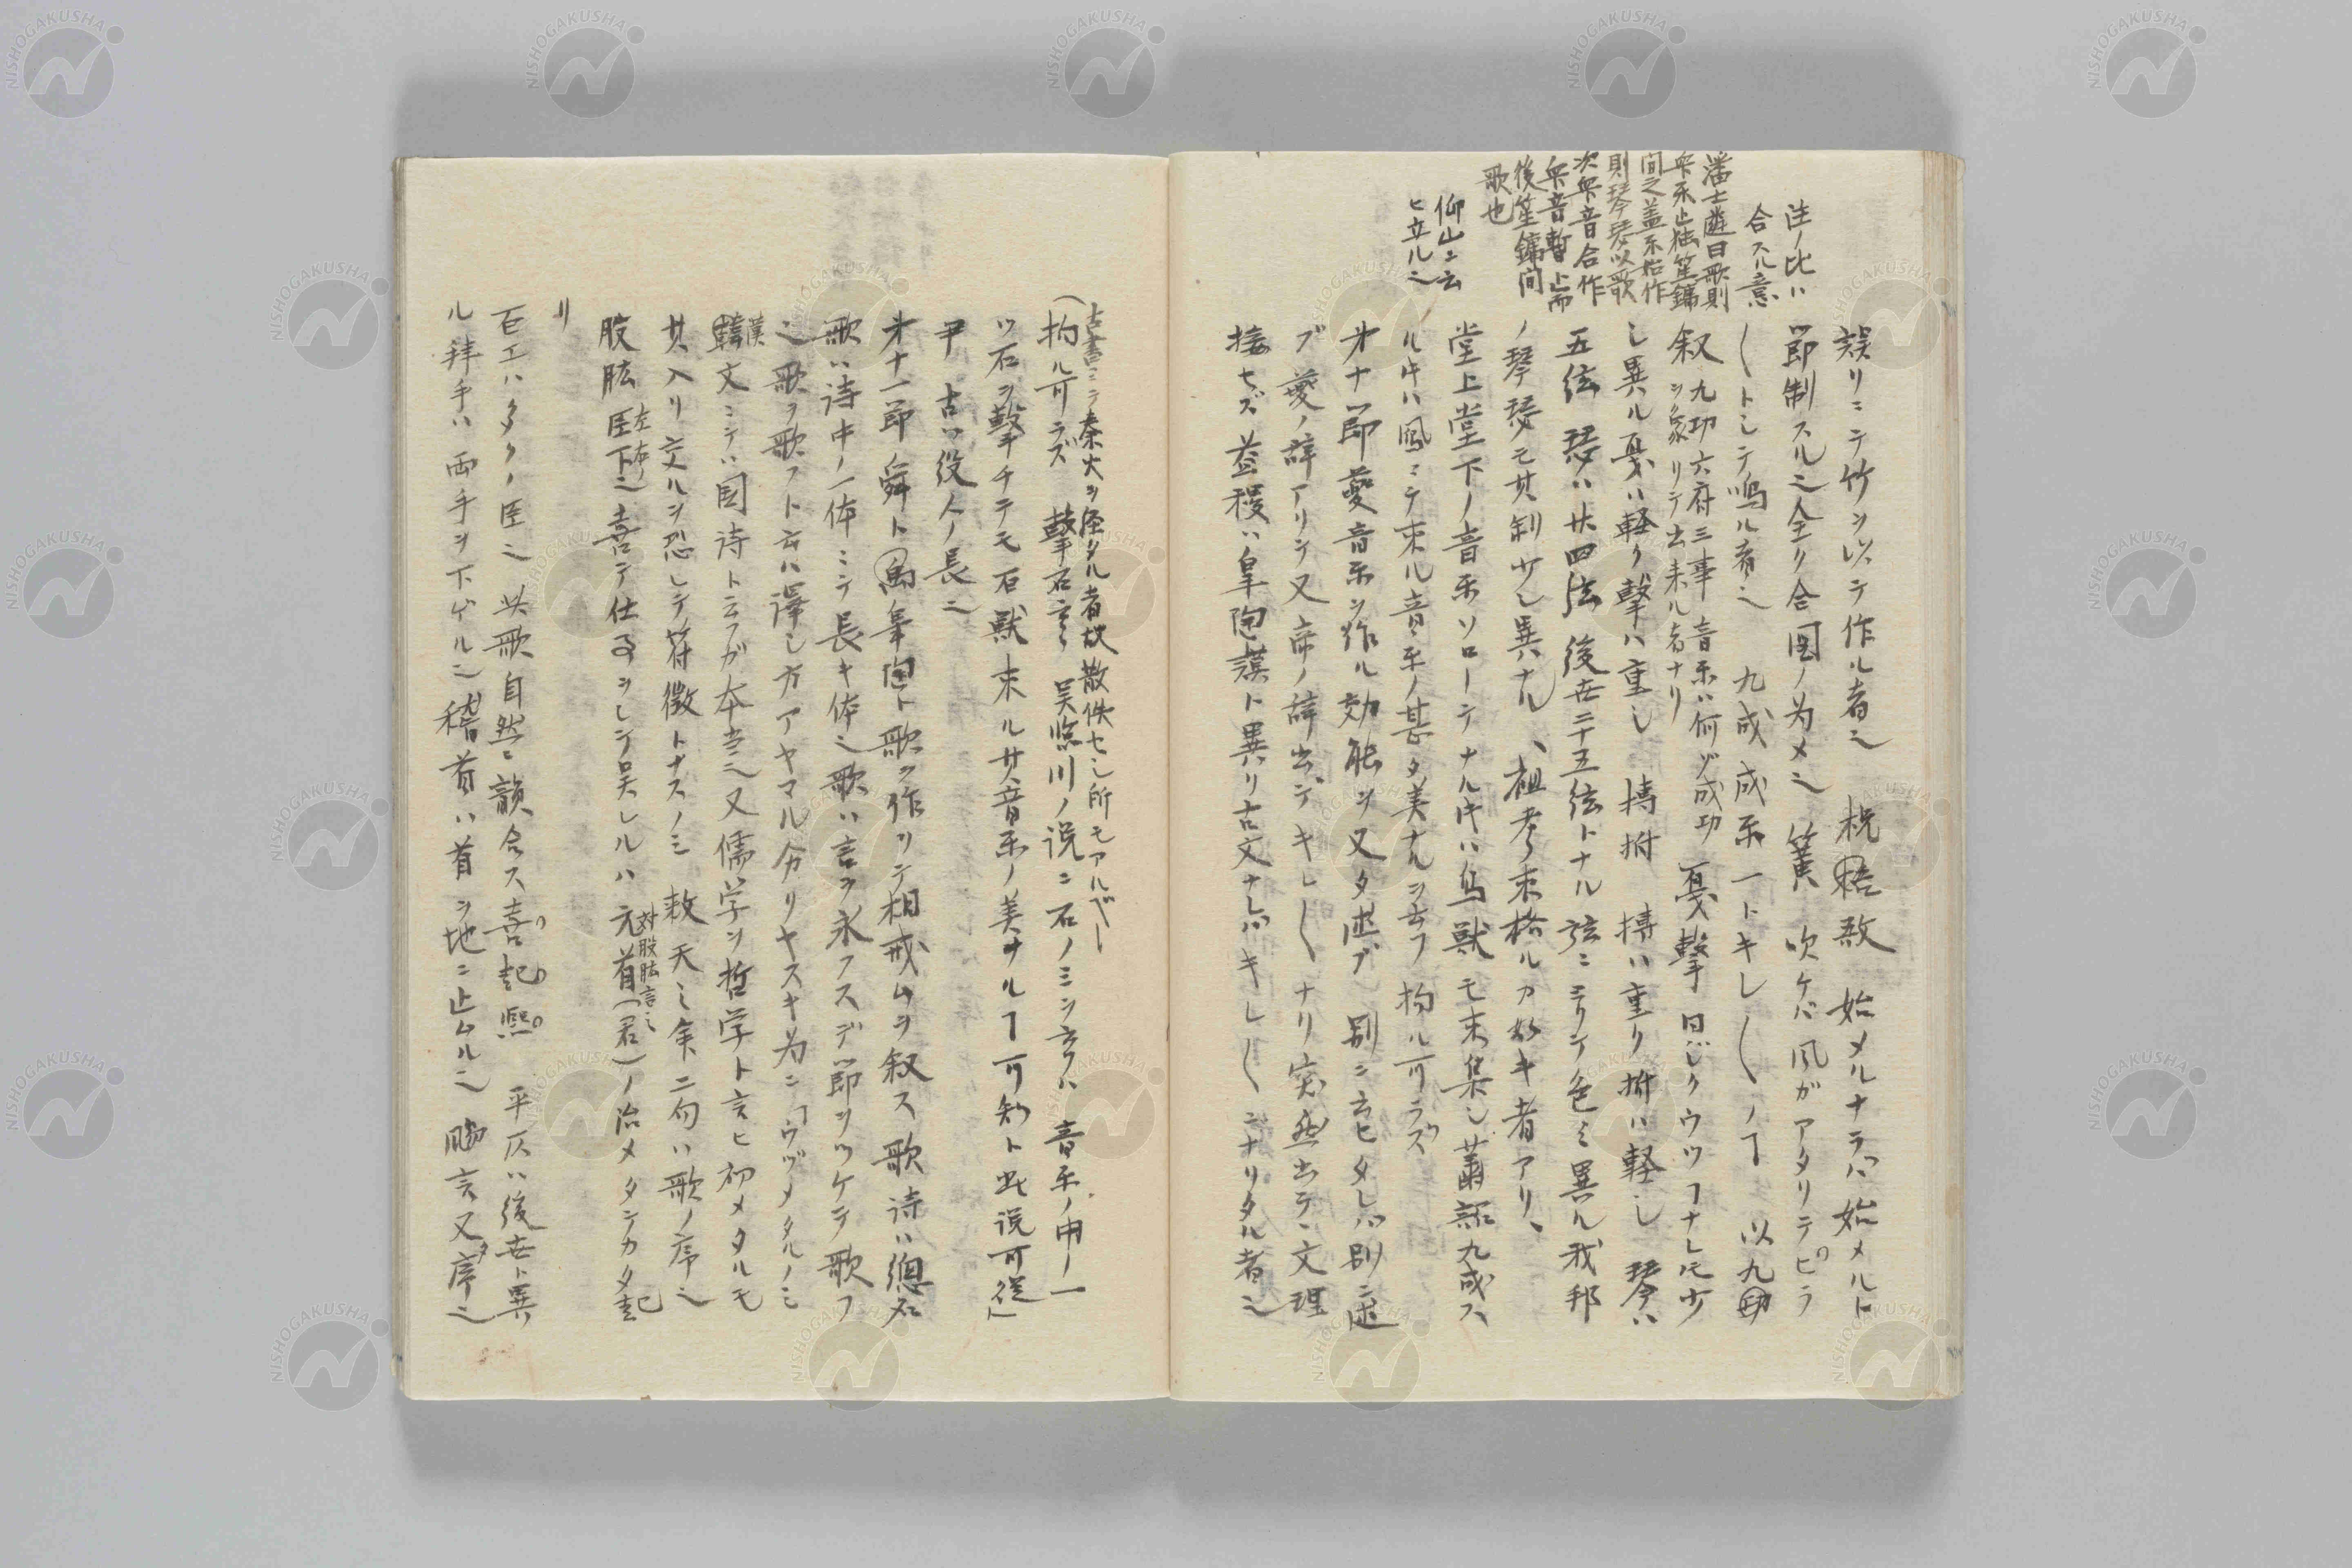 注ノ比ハ
合スル意
潘士遴曰歌則
衆楽止独笙鏞
間之蓋楽始作
則琴瑟以歌
次衆音合作
衆音暫止而
後笙鏞間
歌也
仰山ニ云
ヒ立ルニ
誤リニテ竹ヲ以テ作ル者ニ 柷敔 始メルナラバ始メルト
節制スルニ全リ合図ノ為メニ 簧 吹ケバ風ガアタリテピラ
〱トシテ鳴ル者ニ 九成 成楽一トキレ〱ノヿ 以九功
叙 九功六府三事音楽ハ何ゾ成功
ヲ象リテ出来ル者ナリ 戛撃 同ジクウツヿナレ𪜈少
シ異ル戛ハ軽ク撃ハ重シ 搏拊 搏ハ重ク拊ハ軽シ 琴ハ
五絃 瑟ハ廿四絃 後世二十五絃トナル 絃ニヨリテ色ミ異ル我邦
ノ琴瑟モ其制少シ異ナル、祖考来格ルカ如キ者アリ、
堂上堂下ノ音楽ソローテナル𪜈ハ鳥獣モ来集シ蕭韶九成ス
ル𪜈ハ鳳ミテ来ル音楽ノ甚タ美ナルヲ云フ 拘ル可ラズ
第十節 夔音楽ヲ作ル効能ヲ又タ述ブ 別ニ云ヒタレバ別ニ述
ブ 夔ノ辞アリテ又帝ノ辞出デキレ〱ナリ突然出テ文理
接セズ益稷ハ皐陶謨ト異リ古文ナレバキレ〱ニナリタル者ニ
古書ミテ秦火ヲ経タル者故散佚セシ所モアルベシ
(拘ル可ラズ 撃石云々 呉臨川ノ説ニ石ノミヲ云フハ 音楽ノ中ノ一
ツ石ヲ撃チテモ石獣来ル其音楽ノ美ナルヿ可知ト此説可従」
尹 古ハ役人ノ長ニ
第十一節 舜ト禹皐陶ト歌ヲ作リテ相戒ムヲ叙ス 歌 詩ハ總名
歌ハ詩中ノ一体ミテ長キ体ニ歌ハ言ヲ永フスデ節ヲツケテ歌フ
ニ歌ヲ歌フト云ハ譯シ方アヤマル分リヤスキ為ニ「ウヅメタルノミ
漢
韓文ミテハ図詩ト云フガ本当ニ又儒学ヲ哲学ト言ヒ初メタルモ
其入リ交ルヲ恐レテ符徴トナスノミ 敕天之命二句ハ歌ノ序ニ
股肱 左右ノ
臣下ニ 喜テ仕ルヿヲシテ呉レルハ 元首(君)ノ治メタテカタ起
対股肱言之
リ
百工ハ多クノ臣ニ 此歌自然ニ韻合ス 喜起熙 平仄ハ後世ト異
ル拜手ハ両手ヲ下ゲルニ稽首ハ首ヲ地ニ止ムルニ 颺言又序ニ